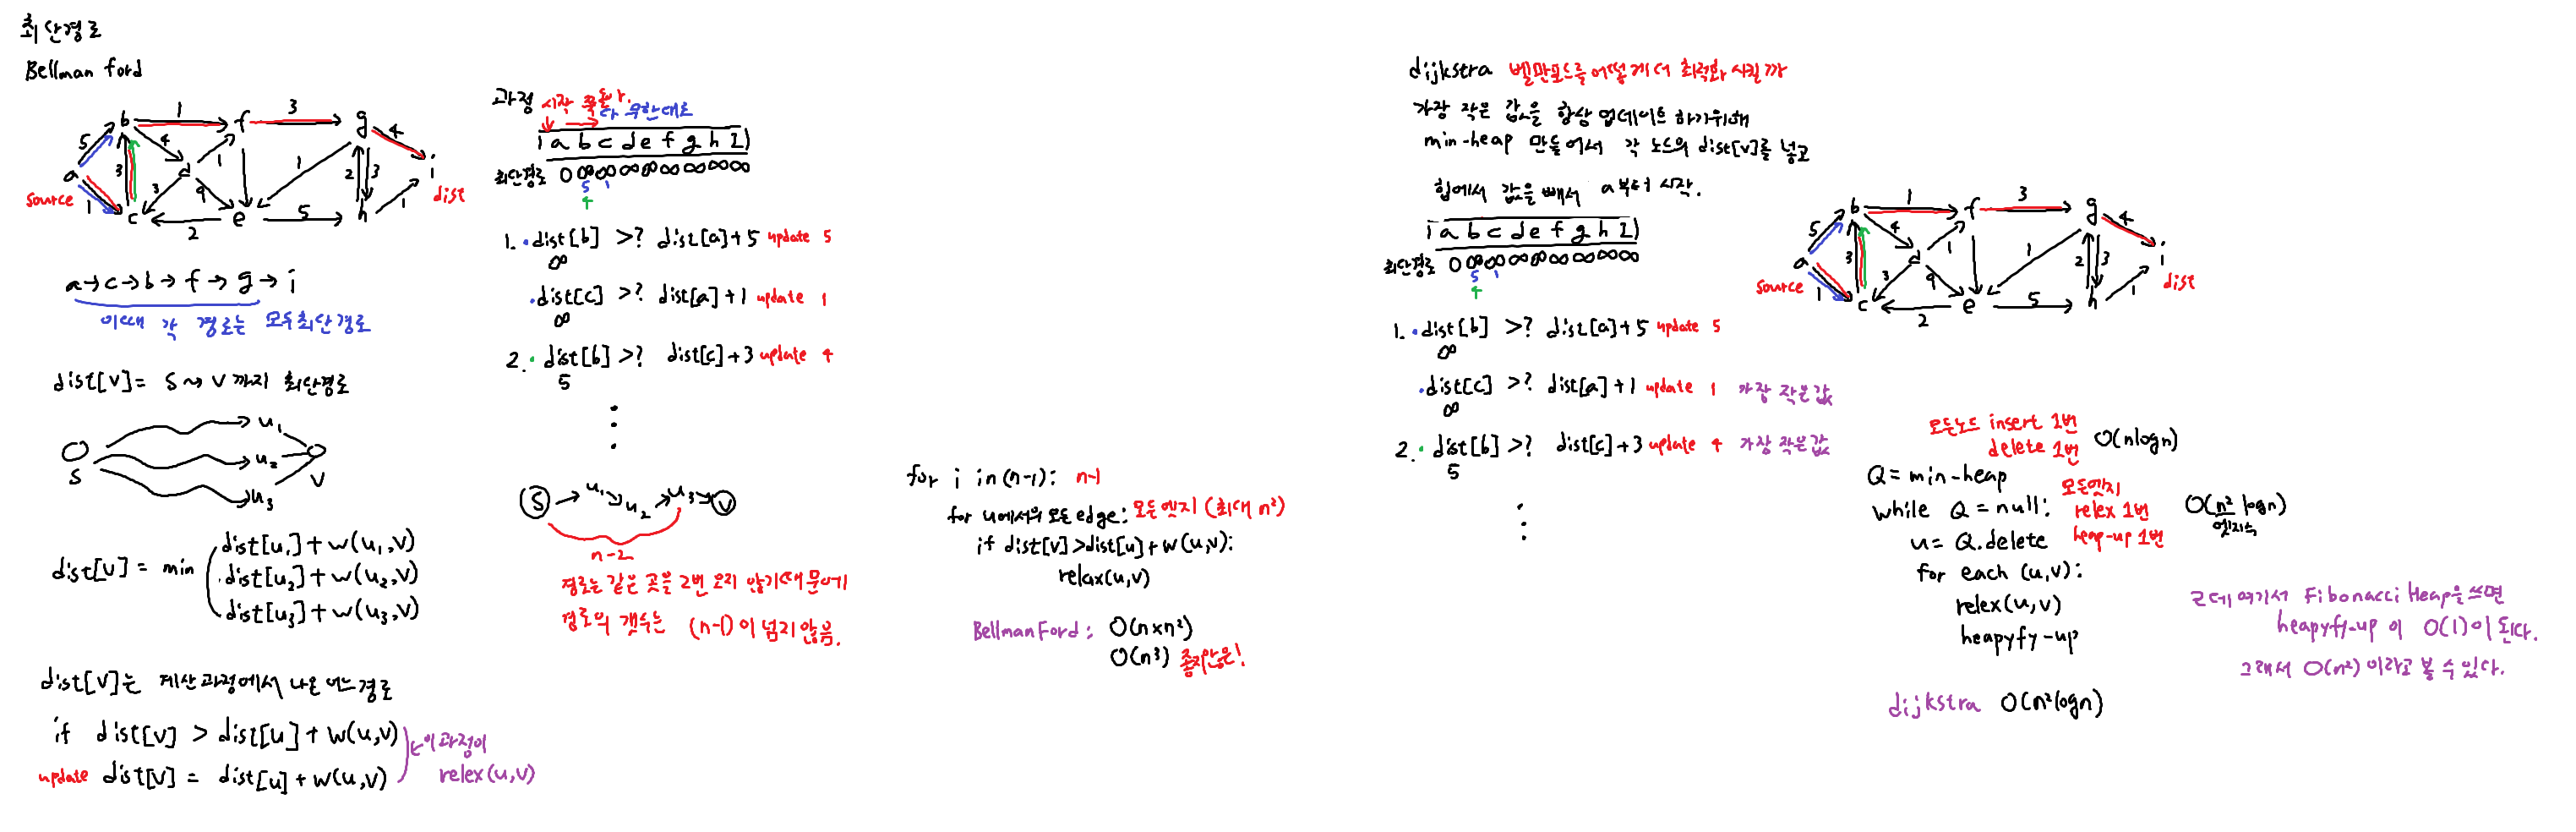 최단경로
Bellman ford
b 1 f 3 g 4
5 4 1 1
a 3 d 9 2 3 i
source 1 c 3 e 5 h 1 dist
2
a→c→b→f→g→i
이때 각 경로는 모두최단경로
dist[v]= s~>v까지 최단경로
s u1 u2 u3 v
dist[v] = min
dist[u1]+w(u1,v)
dist[u2]+w(u2,v)
dist[u3]+w(u3,v)
dist[v]는 계산과정에서 나온 어느경로
if dist[v] > dist[u]+w(u,v)
update dist[v] = dist[u]+w(u,v)
이과정이
relex(u,v)
과정 시작 쭉돈다. 다 무한대로
i a b c d e f g h I)
최단경로 0 ∞ ∞ ∞ ∞ ∞ ∞ ∞ ∞
5 1
4
1. dist[b] >? dist[a]+5 update 5
∞
dist[c] >? dist[a]+1 update 1
∞
2. dist[b] >? dist[c]+3 update 4
5
s → u1 → u2 → u3 → v
n-2
경로는 같은 곳을 2번 오지 않기때문에
경로의 갯수는 (n-1)이 넘지 않음.
for i in (n-1): n-1
for u에서의 모든 edge: 모든엣지 (최대 n²)
if dist[v]>dist[u]+w(u,v):
relax(u,v)
BellmanFord: O(n×n²)
O(n³) 좋지않은!
dijkstra 벨만포드를 어떻게 더 최적화 시킬까
가장 작은 값을 항상 업데이트 하기위해
min-heap 만들어서 각 노드의 dist[v]를 넣고
힙에서 값을 빼서 a부터 시작.
i a b c d e f g h I)
최단경로 0 ∞ ∞ ∞ ∞ ∞ ∞ ∞ ∞
5 1
4
1. dist[b] >? dist[a]+5 update 5
∞
dist[c] >? dist[a]+1 update 1 가장 작은값
∞
2. dist[b] >? dist[c]+3 update 4 가장 작은값
5
b 1 f 3 g 4
5 4 1 1
a 3 d 9 2 3 i
source 1 c 3 e 5 h 1 dist
2
모든노드 insert 1번
delete 1번 O(nlogn)
Q = min-heap
while Q = null:
u = Q.delete
for each (u,v):
relex(u,v)
heapyfy-up
모든엣지
relex 1번
heap-up 1번
O(n² logn)
엣지수
근데 여기서 Fibonacci Heap을 쓰면
heapyfy-up 이 O(1)이 된다.
그래서 O(n²) 이라고 볼 수 있다.
dijkstra O(n²logn)